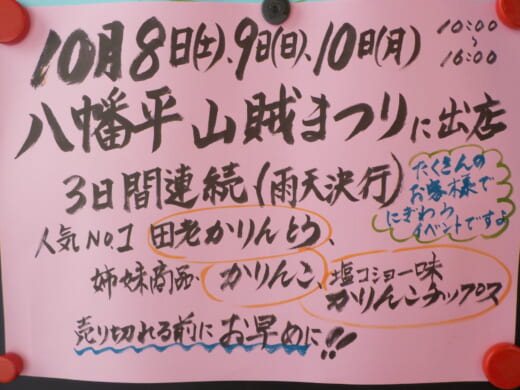 10月8日(土)、9日(日)、10日(月) 10:00~16:00
八幡平 山賊まつりに出店
3日間連続(雨天決行)
たくさんの
お客様で
にぎわう
イベントですよ
人気NO.1 田老かりんとう、
姉妹商品・かりんこ、塩コショー味
かりんこチップス
売り切れる前に お早めに!!